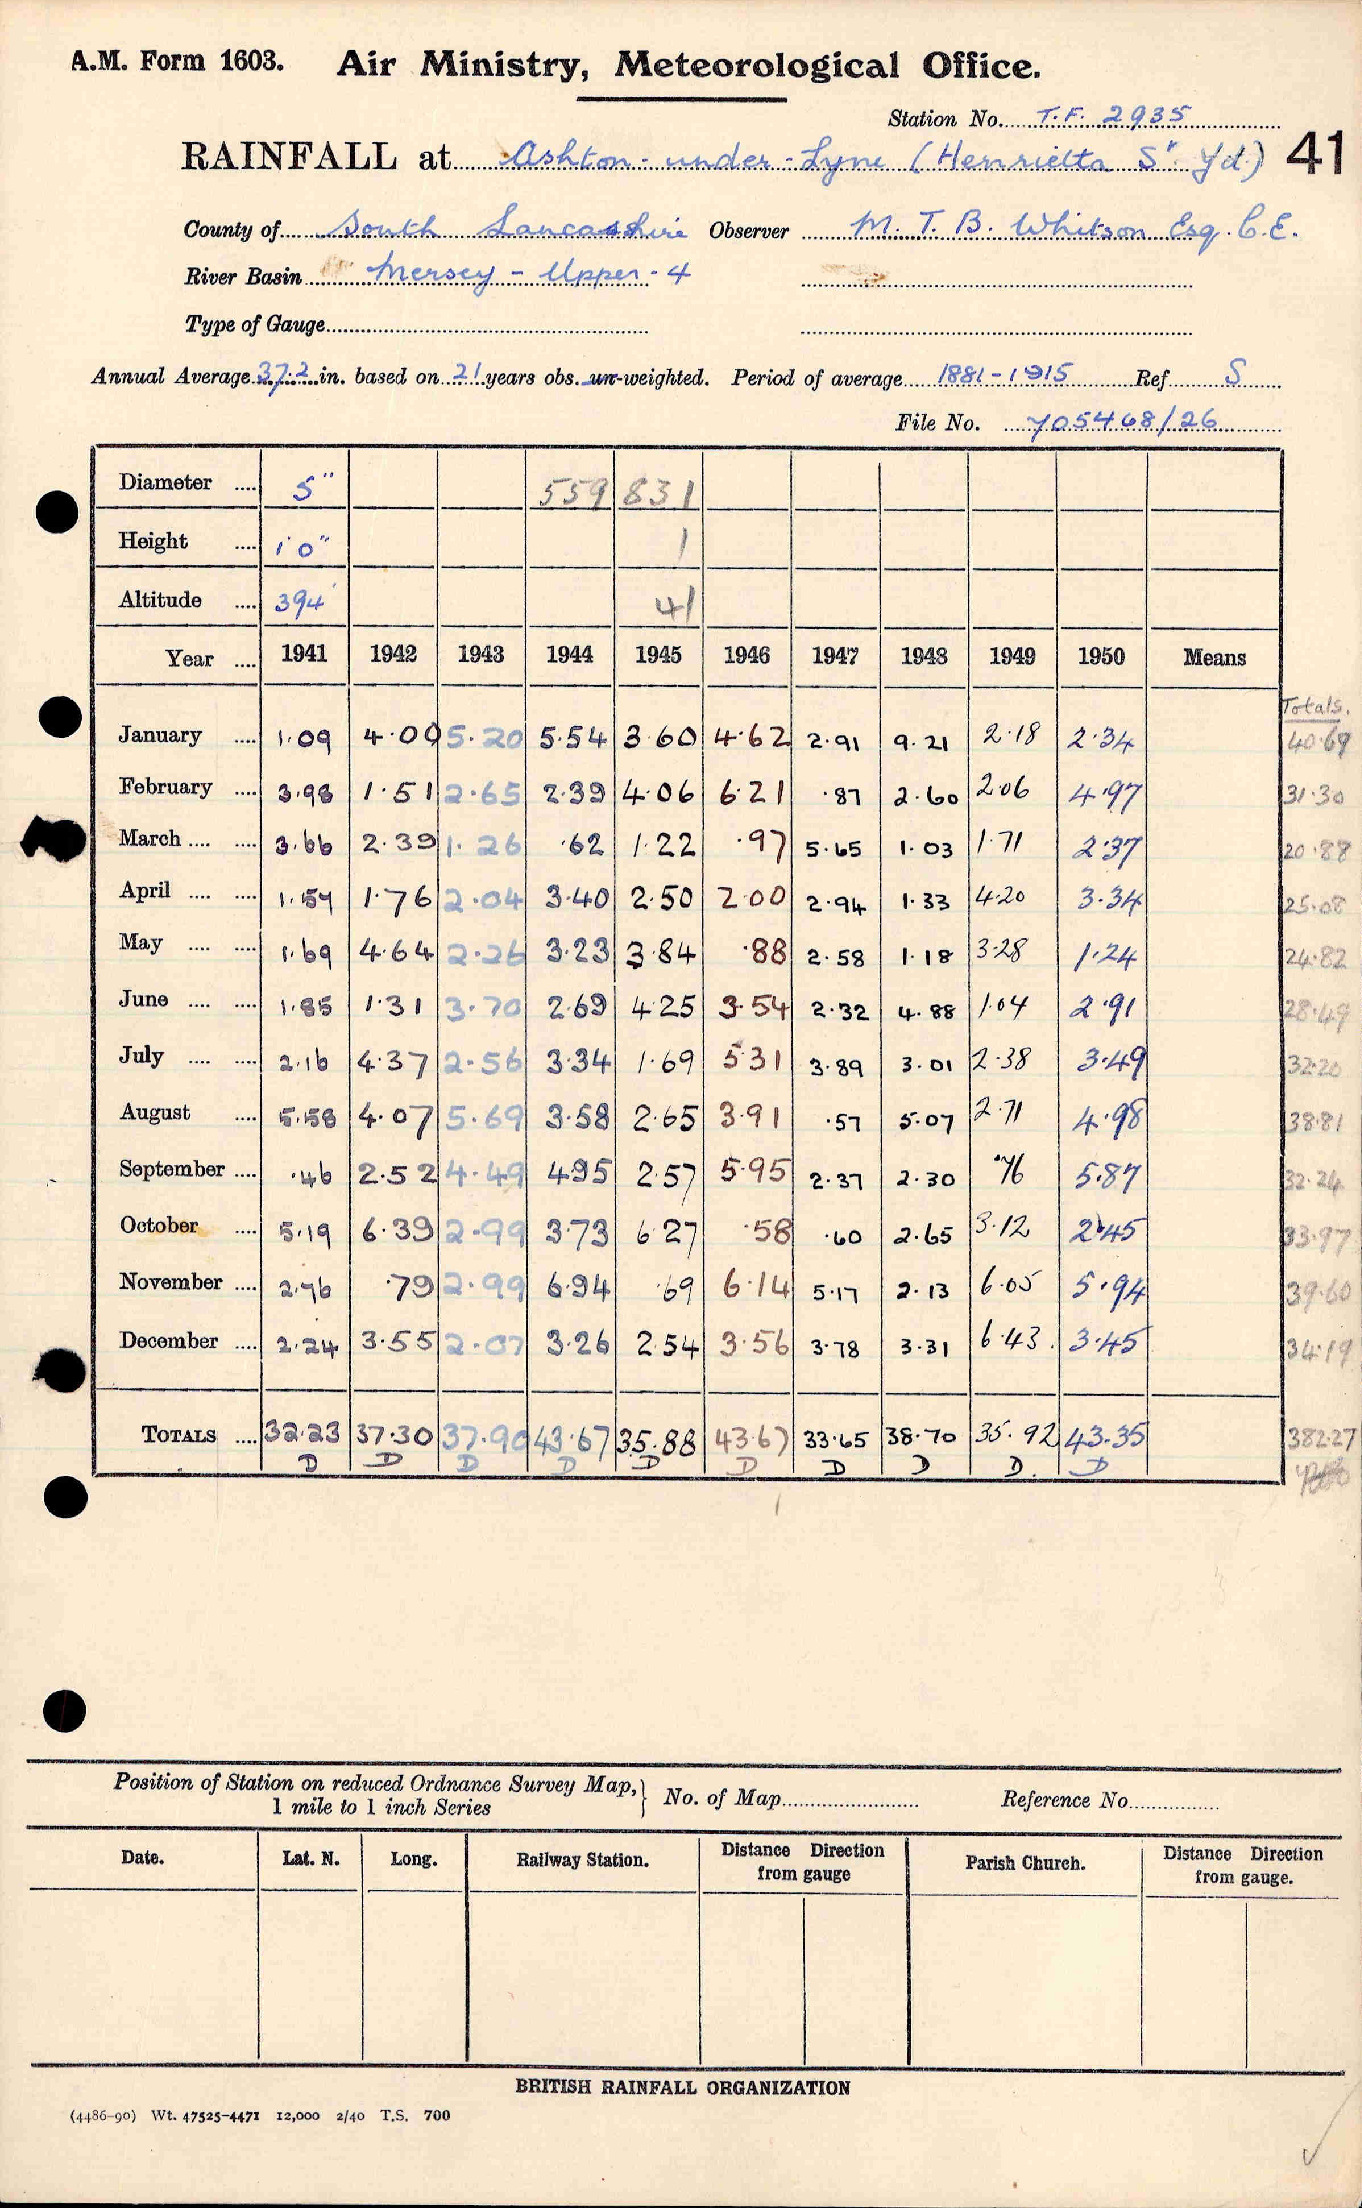 A.M. Form 1603. Air Ministry, Meteorological Office.
Station No. T.F. 2935
RAINFALL at Ashton-under-Lyne (Henrietta St Yd.) 41
County of South Lancashire Observer M. T. B. Whitson Esq. C.E.
River Basin Mersey - Upper - 4
Type of Gauge
Annual Average 37.2 in. based on 21 years obs. un-weighted. Period of average 1881-1915 Ref S
File No. 705468/26
Diameter .... 5" 559 831
Height .... 1'0" 1
Altitude .... 394' 41
Year .... 1941 1942 1943 1944 1945 1946 1947 1948 1949 1950 Means
Totals.
January .... 1.09 4.00 5.20 5.54 3.60 4.62 2.91 9.21 2.18 2.34 40.69
February .... 3.98 1.51 2.65 2.39 4.06 6.21 .87 2.60 2.06 4.97 31.30
March .... .... 3.66 2.39 1.26 .62 1.22 .97 5.65 1.03 1.71 2.37 20.88
April .... .... 1.57 1.76 2.04 3.40 2.50 2.00 2.94 1.33 4.20 3.34 25.08
May .... .... 1.69 4.64 2.26 3.23 3.84 .88 2.58 1.18 3.28 1.24 24.82
June .... .... 1.85 1.31 3.70 2.69 4.25 3.54 2.32 4.88 1.04 2.91 28.49
July .... .... 2.16 4.37 2.56 3.34 1.69 5.31 3.89 3.01 2.38 3.49 32.20
August .... 5.58 4.07 5.69 3.58 2.65 3.91 .57 5.07 2.71 4.98 38.81
September .... .46 2.52 4.49 4.95 2.57 5.95 2.37 2.30 .76 5.87 32.24
October .... 5.19 6.39 2.99 3.73 6.27 .58 .60 2.65 3.12 2.45 33.97
November .... 2.76 .79 2.99 6.94 .69 6.14 5.17 2.13 6.05 5.94 39.60
December .... 2.24 3.55 2.07 3.26 2.54 3.56 3.78 3.31 6.43 3.45 34.19
TOTALS .... 32.23 37.30 37.90 43.67 35.88 43.67 33.65 38.70 35.92 43.35 382.27
D D D D D D D D D. D
Position of Station on reduced Ordnance Survey Map, } No. of Map Reference No.
1 mile to 1 inch Series
Date. Lat. N. Long. Railway Station. Distance Direction from gauge Parish Church. Distance Direction from gauge.
BRITISH RAINFALL ORGANIZATION
(4486-90) Wt. 47525-4471 12,000 2/40 T.S. 700